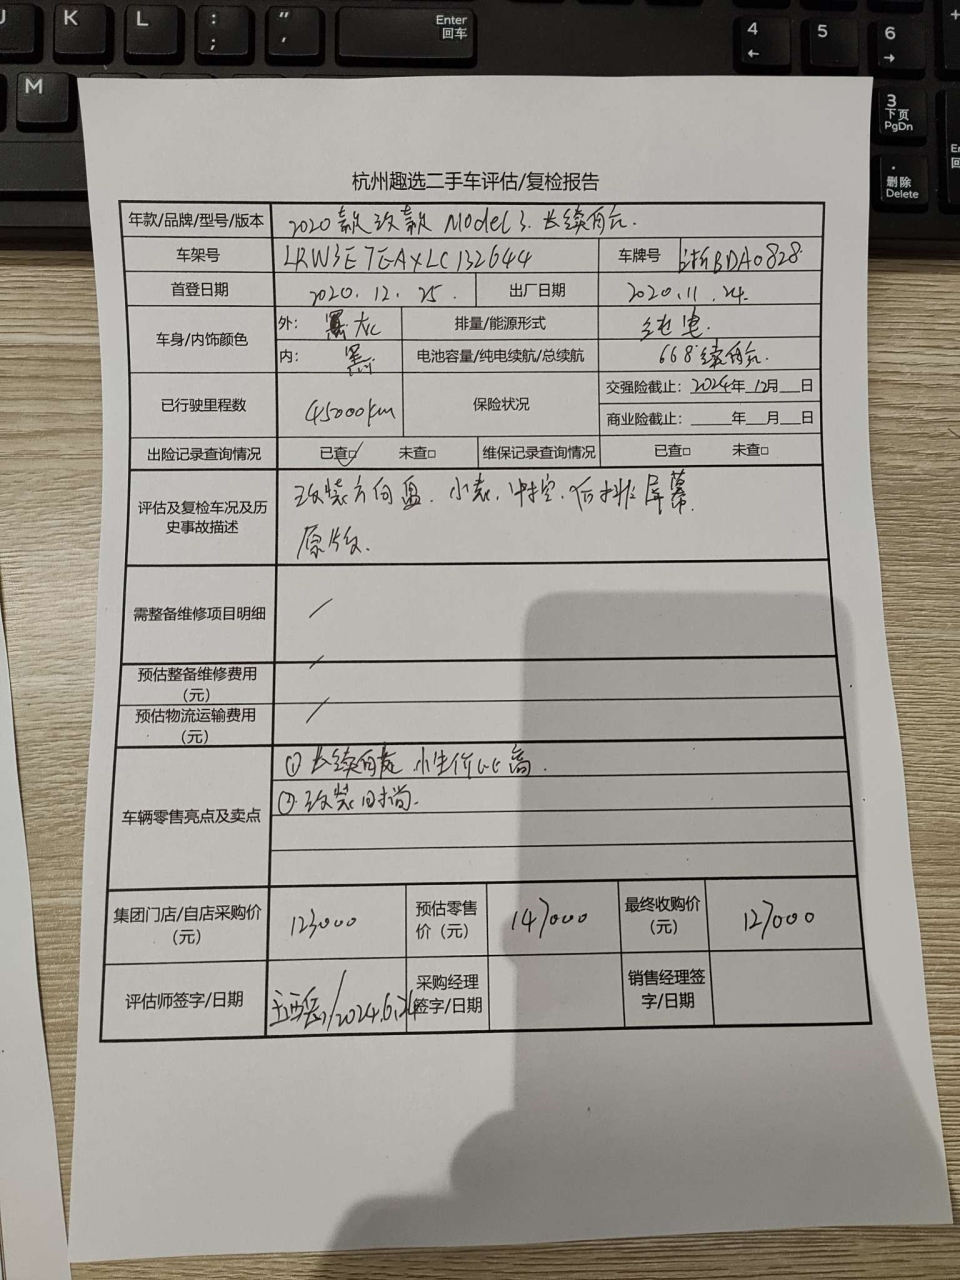 J
K
L
:
;
"
,
Enter
回车
4
←
5
6
→
M
3
下页
PgDn
.
删除
Delete
杭州趣选二手车评估/复检报告
年款/品牌/型号/版本 2020款改款 Model 3. 长续航.
车架号 LRW3E7EAXLC132644 车牌号 浙BDA0828
首登日期 2020.12.25. 出厂日期 2020.11.24.
车身/内饰颜色 外: 黑灰 排量/能源形式 纯电.
内: 黑. 电池容量/纯电续航/总续航 668续航.
已行驶里程数 45000km 保险状况 交强险截止: 2024年 12月 日
商业险截止: 年 月 日
出险记录查询情况 已查□✓ 未查□ 维保记录查询情况 已查□ 未查□
评估及复检车况及历史事故描述 改装方向盘. 小表. 中控. 后排屏幕.
原版.
需整备维修项目明细 /
预估整备维修费用(元) /
预估物流运输费用(元) /
车辆零售亮点及卖点 ① 长续航 性价比高.
② 改装时尚.
集团门店/自店采购价(元) 123000 预估零售价(元) 147000 最终收购价(元) 127000
评估师签字/日期 /2024.6.24 采购经理签字/日期 销售经理签字/日期